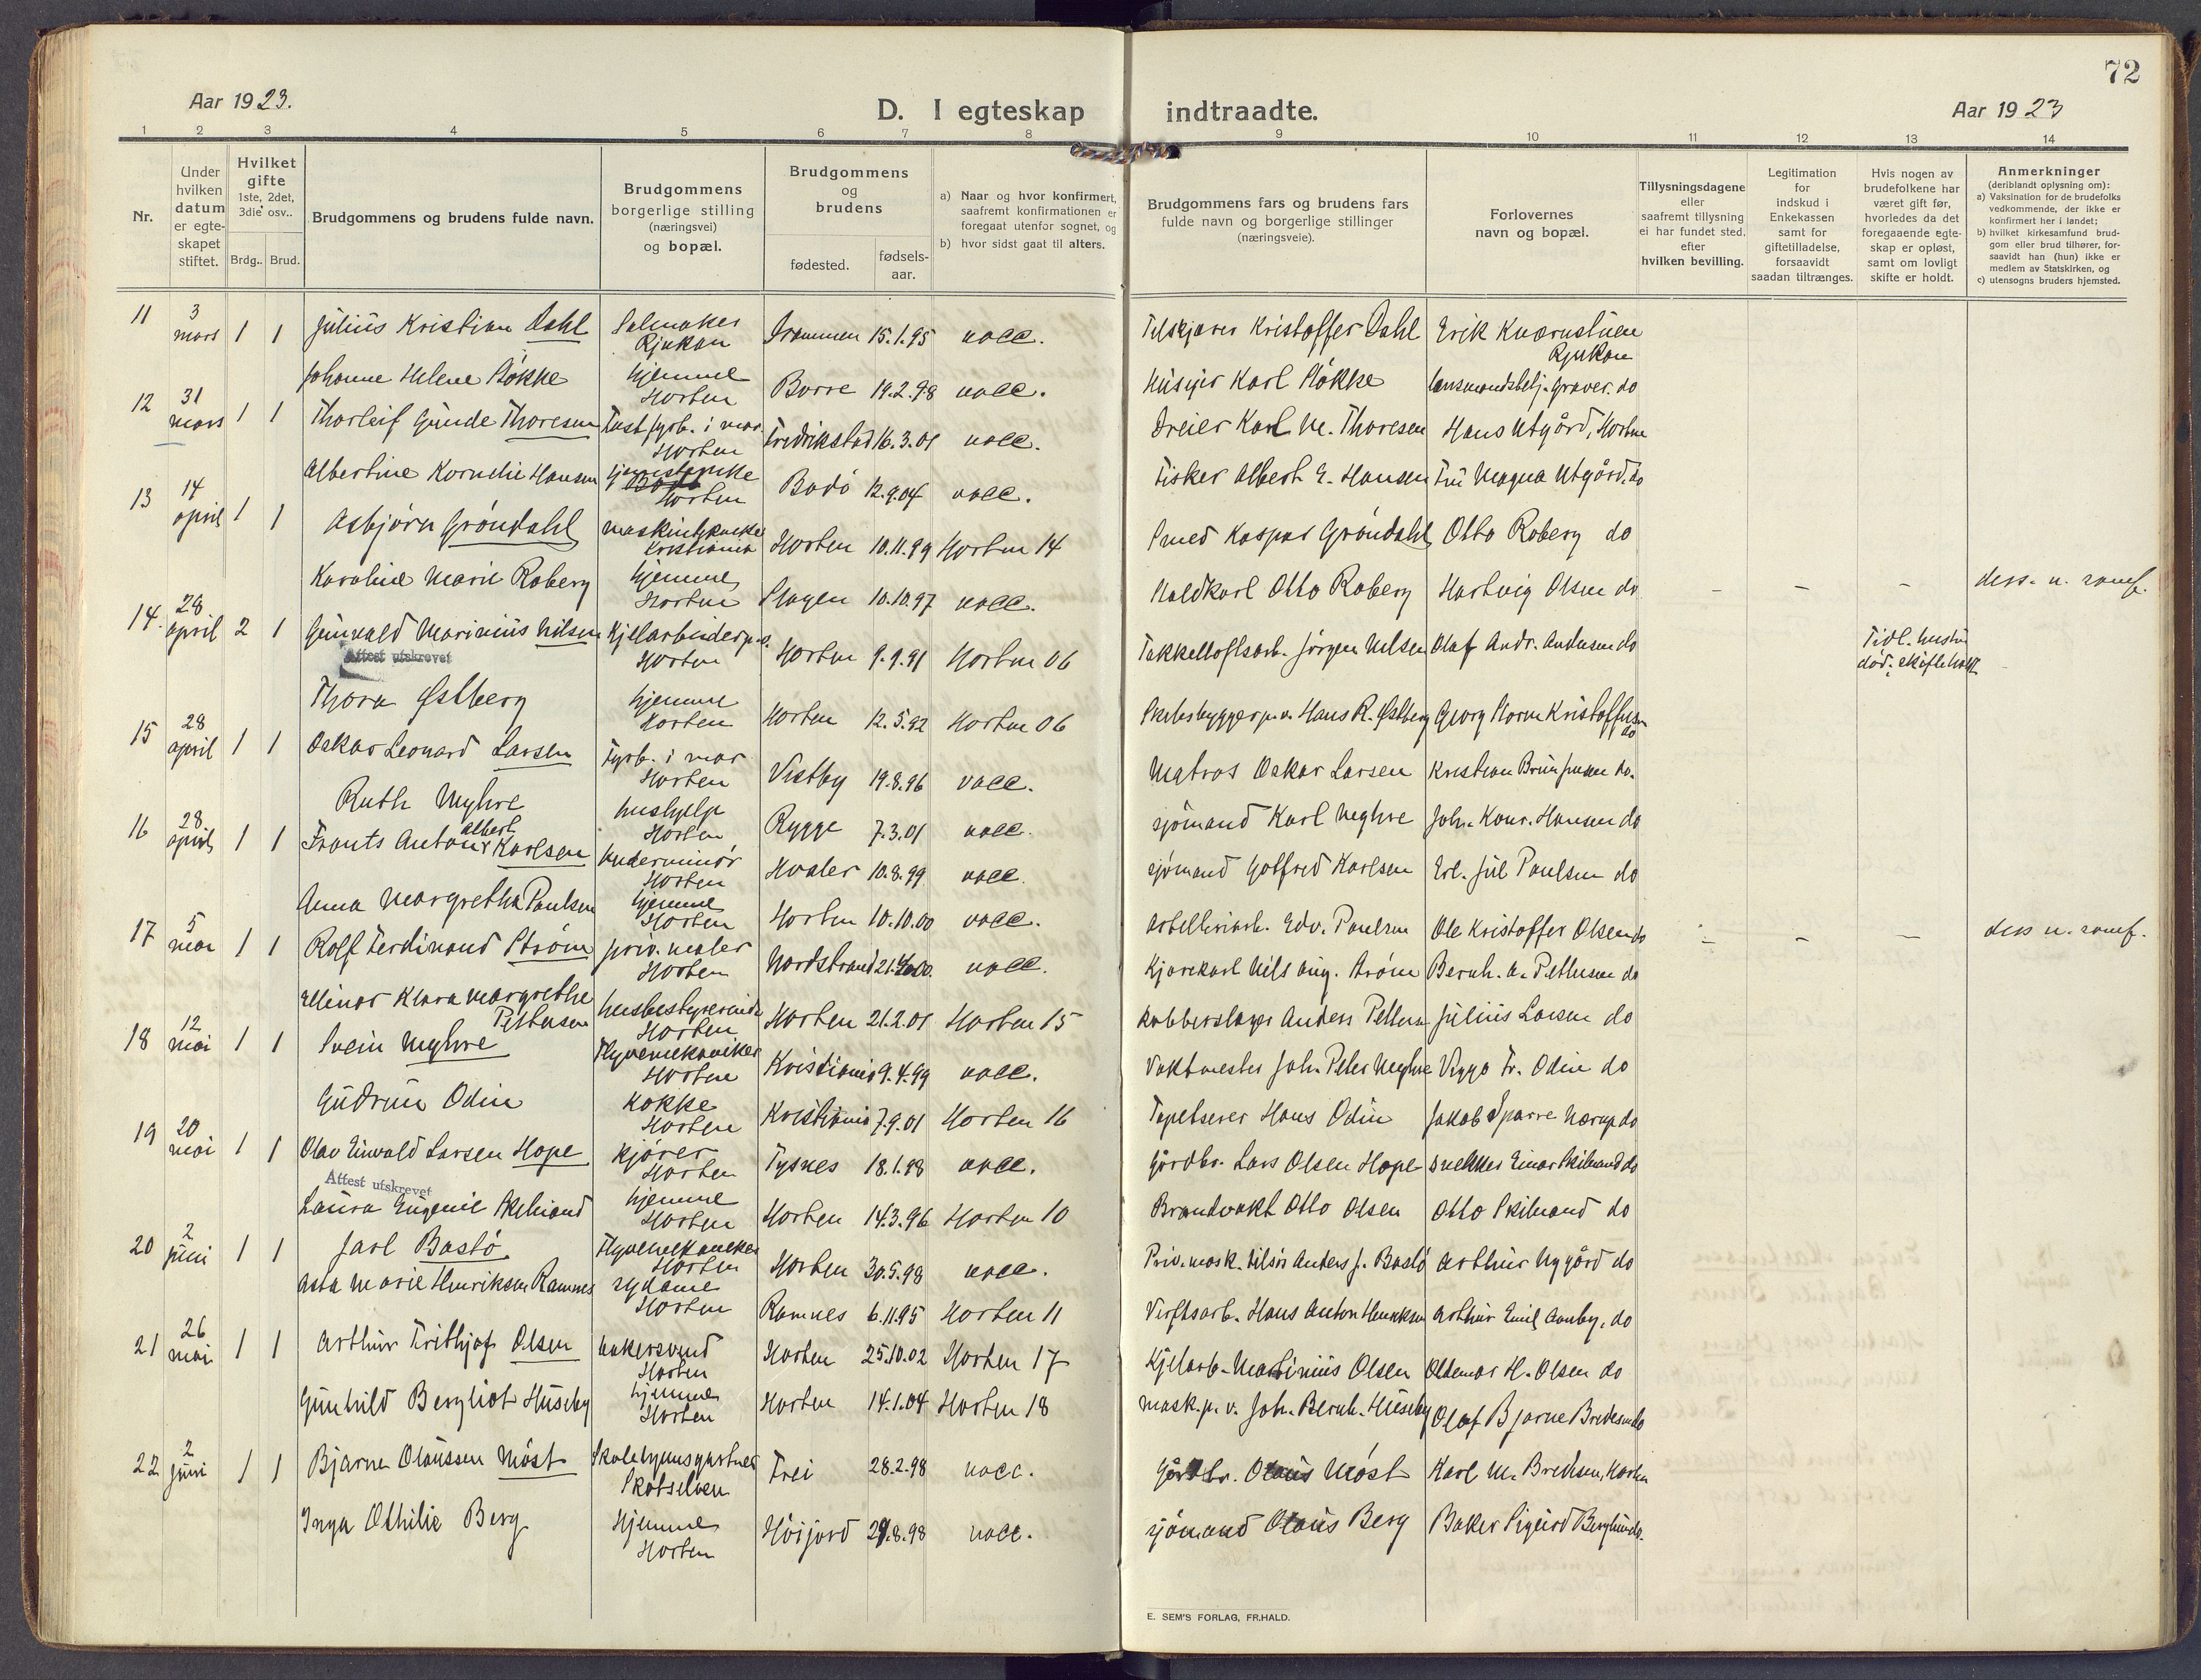 72
Aar 1923.
D. I egteskap indtraadte.
Aar 1923
1 2 3 4 5 6 7 8 9 10 11 12 13 14
Nr.
Under hvilken datum er egteskapet stiftet.
Hvilket gifte 1ste, 2det, 3die osv..
Brdg.. Brud.
Brudgommens og brudens fulde navn.
Brudgommens borgerlige stilling (næringsvei) og bopæl.
Brudgommens og brudens
fødested.
fødselsaar.
a) Naar og hvor konfirmert, saafremt konfirmationen er foregaat utenfor sognet, og
b) hvor sidst gaat til alters.
Brudgommens fars og brudens fars fulde navn og borgerlige stillinger (næringsveie).
Forlovernes navn og bopæl.
Tillysningsdagene eller saafremt tillysning ei har fundet sted, efter hvilken bevilling.
Legitimation for indskud i Enkekassen samt for giftetilladelse, forsaavidt saadan tiltrænges.
Hvis nogen av brudefolkene har været gift før, hvorledes da det foregaaende egteskap er opløst, samt om lovligt skifte er holdt.
Anmerkninger (deriblandt oplysning om):
a) Vaksination for de brudefolks vedkommende, der ikke er konfirmert her i landet;
b) hvilket kirkesamfund brudgom eller brud tilhører, forsaavidt han (hun) ikke er medlem av Statskirken, og
c) utensogns bruders hjemsted.
11 3 mars 1 1 Julius Kristian Dahl Salmaker Rjukan Drammen 15.1.95 vacc. Kristoffer Dahl Erik Kværnstuen Rjukan
Johanne Helene Løkke hjemme Horten Borre 19.2.98 vacc. Karl Løkke
12 31 mars 1 1 Thorleif Gunde Thoresen Fast fyrb. i mar. Horten Fredrikstad 16.3.01 vacc. Dreier Karl M. Thoresen Hans Utgård, Horten
Albertine Kornelie Hansen Horten Bodö 12.9.04 vacc. Fisker Albert E. Hansen Fru Magna Utgård, do
13 14 april 1 1 Asbjörn Gröndahl Kristiania Horten 10.11.99 Horten 14 Smed Kaspar Gröndahl Otto Roberg do
Karoline Marie Roberg hjemme Horten Slagen 10.10.97 vacc. Otto Roberg Hartvig Olsen do – – –
14. 28 april 2 1 Gunvald Marinius Nilsen Kjelarbeider p.v. Horten Horten 9.9.91 Horten 06 Takkelloftsarb. Jörgen Nilsen Olaf Andr. Andersen do Tidl. hustru död, skifte holdt
Attest utskrevet
Thora Østberg hjemme Horten Horten 12.5.92 Horten 06 Skibsbygger p.v. Hans R. Østberg Georg Norm Kristoffersen do
15 28 april 1 1 Oskar Leonard Larsen Fyrb. i mar Horten Vestby 19.8.96 vacc. Matros Oskar Larsen Kristian do.
Ruth Myhre hushjelp Horten Rygge 7.3.01 vacc. sjömand Karl Myhre Joh. Konr. Hansen do
16 28 april 1 1 Frants Anton Albert Karlsen Underminör Horten Hvaler 10.8.99 vacc. sjömand Gotfred Karlsen Erl. Jul Paulsen do
Anna Margretha Paulsen hjemme Horten Horten 10.10.00 vacc. Edv. Paulsen Ole Kristoffer Olsen do – – –
17 5 mai 1 1 Rolf Ferdinand Ström priv. maler Horten Nordstrand vacc. Kjörekarl Nils Aug. Ström Bernh. A. Pettersen do
Ellinor Klara Margrethe Pettersen husbestyrerinde Horten Horten 21.2.01 Horten 15 Kobberslager Anders Pettersen Julius Larsen do
18 12 mai 1 1 Svein Myhre Flyvemekaniker Horten Kristiania 9.4.99 vacc. Vaktmester Joh. Peter Myhre Viggo Fr. Odin do
Gudrun Odin Kokke Horten Kristiania 7.9.01 Horten 16 Tapetserer Hans Odin Jakob Sparre Nærup do
19 20 mai 1 1 Olav Einvald Larsen Hope kjörer Horten Tysnes 18.1.98 vacc. Gårdbr. Lars Olsen Hope snekker Einar Skibrand do
Attest utskrevet
Laura Eugenie Skibrand hjemme Horten Horten 14.3.96 Horten 10 Brandvakt Otto Olsen Otto Skibrand do
20 2 juni 1 1 Jarl Bastö Flyvemekaniker Horten Horten 30.5.98 vacc. Anders J. Bastö Arthur Nygård do
Asta Marie Henriksen Ramnes sydame Horten Ramnes 6.11.95 Horten 11 Verftsarb. Hans Anton Henriksen Arthur Emil Aanby, do
21 26 mai 1 1 Arthur Frithjof Olsen bakersvend Horten Horten 25.10.02 Horten 17 Kjelarb. Martinius Olsen Oldemar H. Olsen do
Gunhild Bergliot Huseby hjemme Horten Horten 14.1.04 Horten 18 mask. p.v. Joh. Bernh. Huseby Olaf Bjarne Bredesen do
22 2 juni 1 1 Bjarne Olaussen Möst Skotselven Frei 28.2.98 vacc. Gårdbr. Olaus Möst Karl M. Horten
Inga Othilie Berg Hjemme Horten Höijord vacc. sjömand Olaus Berg Baker Sigurd Berglund do.
E. SEM'S FORLAG, FR.HALD.